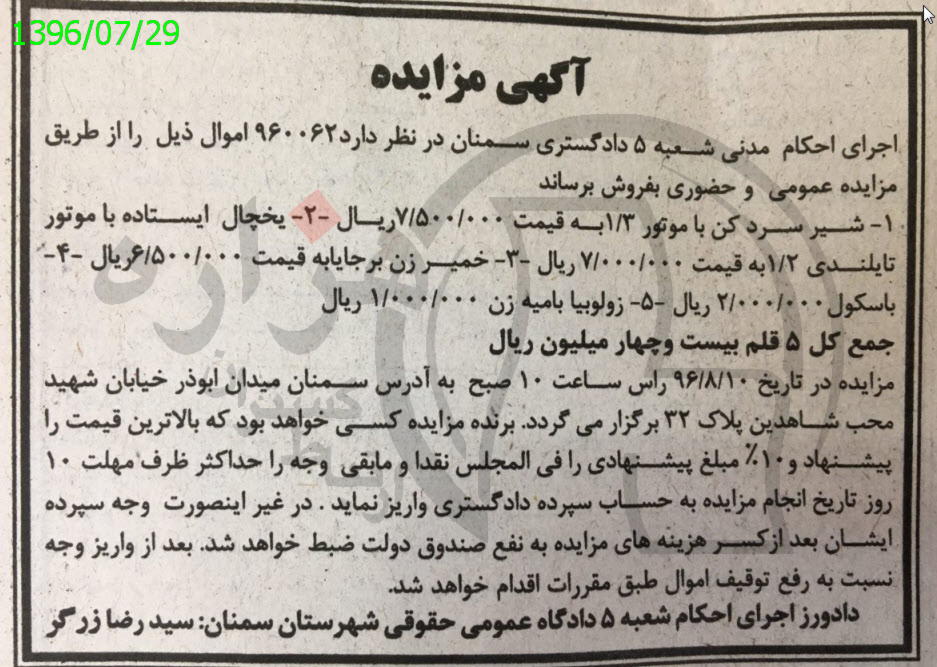 1396/07/29
آگهی مزایده
اجرای احکام مدنی شعبه ۵ دادگستری سمنان در نظر دارد۹۶۰۰۶۲ اموال ذیل را از طریق
مزایده عمومی و حضوری بفروش برساند
۱- شیر سرد کن با موتور ۱/۳به قیمت ۷/۵۰۰/۰۰۰ریال -۲- یخچال ایستاده با موتور
تایلندی ۱/۲به قیمت ۷/۰۰۰/۰۰۰ ریال -۳- خمیر زن برجایابه قیمت ۶/۵۰۰/۰۰۰ریال -۴-
باسکول ۲/۰۰۰/۰۰۰ ریال -۵- زولوبیا بامیه زن ۱/۰۰۰/۰۰۰ ریال
جمع کل ۵ قلم بیست وچهار میلیون ریال
مزایده در تاریخ ۹۶/۸/۱۰ راس ساعت ۱۰ صبح به آدرس سمنان میدان ابوذر خیابان شهید
محب شاهدین پلاک ۳۲ برگزار می گردد. برنده مزایده کسی خواهد بود که بالاترین قیمت را
پیشنهاد و۱۰٪ مبلغ پیشنهادی را فی المجلس نقدا و مابقی وجه را حداکثر ظرف مهلت ۱۰
روز تاریخ انجام مزایده به حساب سپرده دادگستری واریز نماید . در غیر اینصورت وجه سپرده
ایشان بعد ازکسر هزینه های مزایده به نفع صندوق دولت ضبط خواهد شد. بعد از واریز وجه
نسبت به رفع توقیف اموال طبق مقررات اقدام خواهد شد.
دادورز اجرای احکام شعبه ۵ دادگاه عمومی حقوقی شهرستان سمنان: سید رضا زرگر